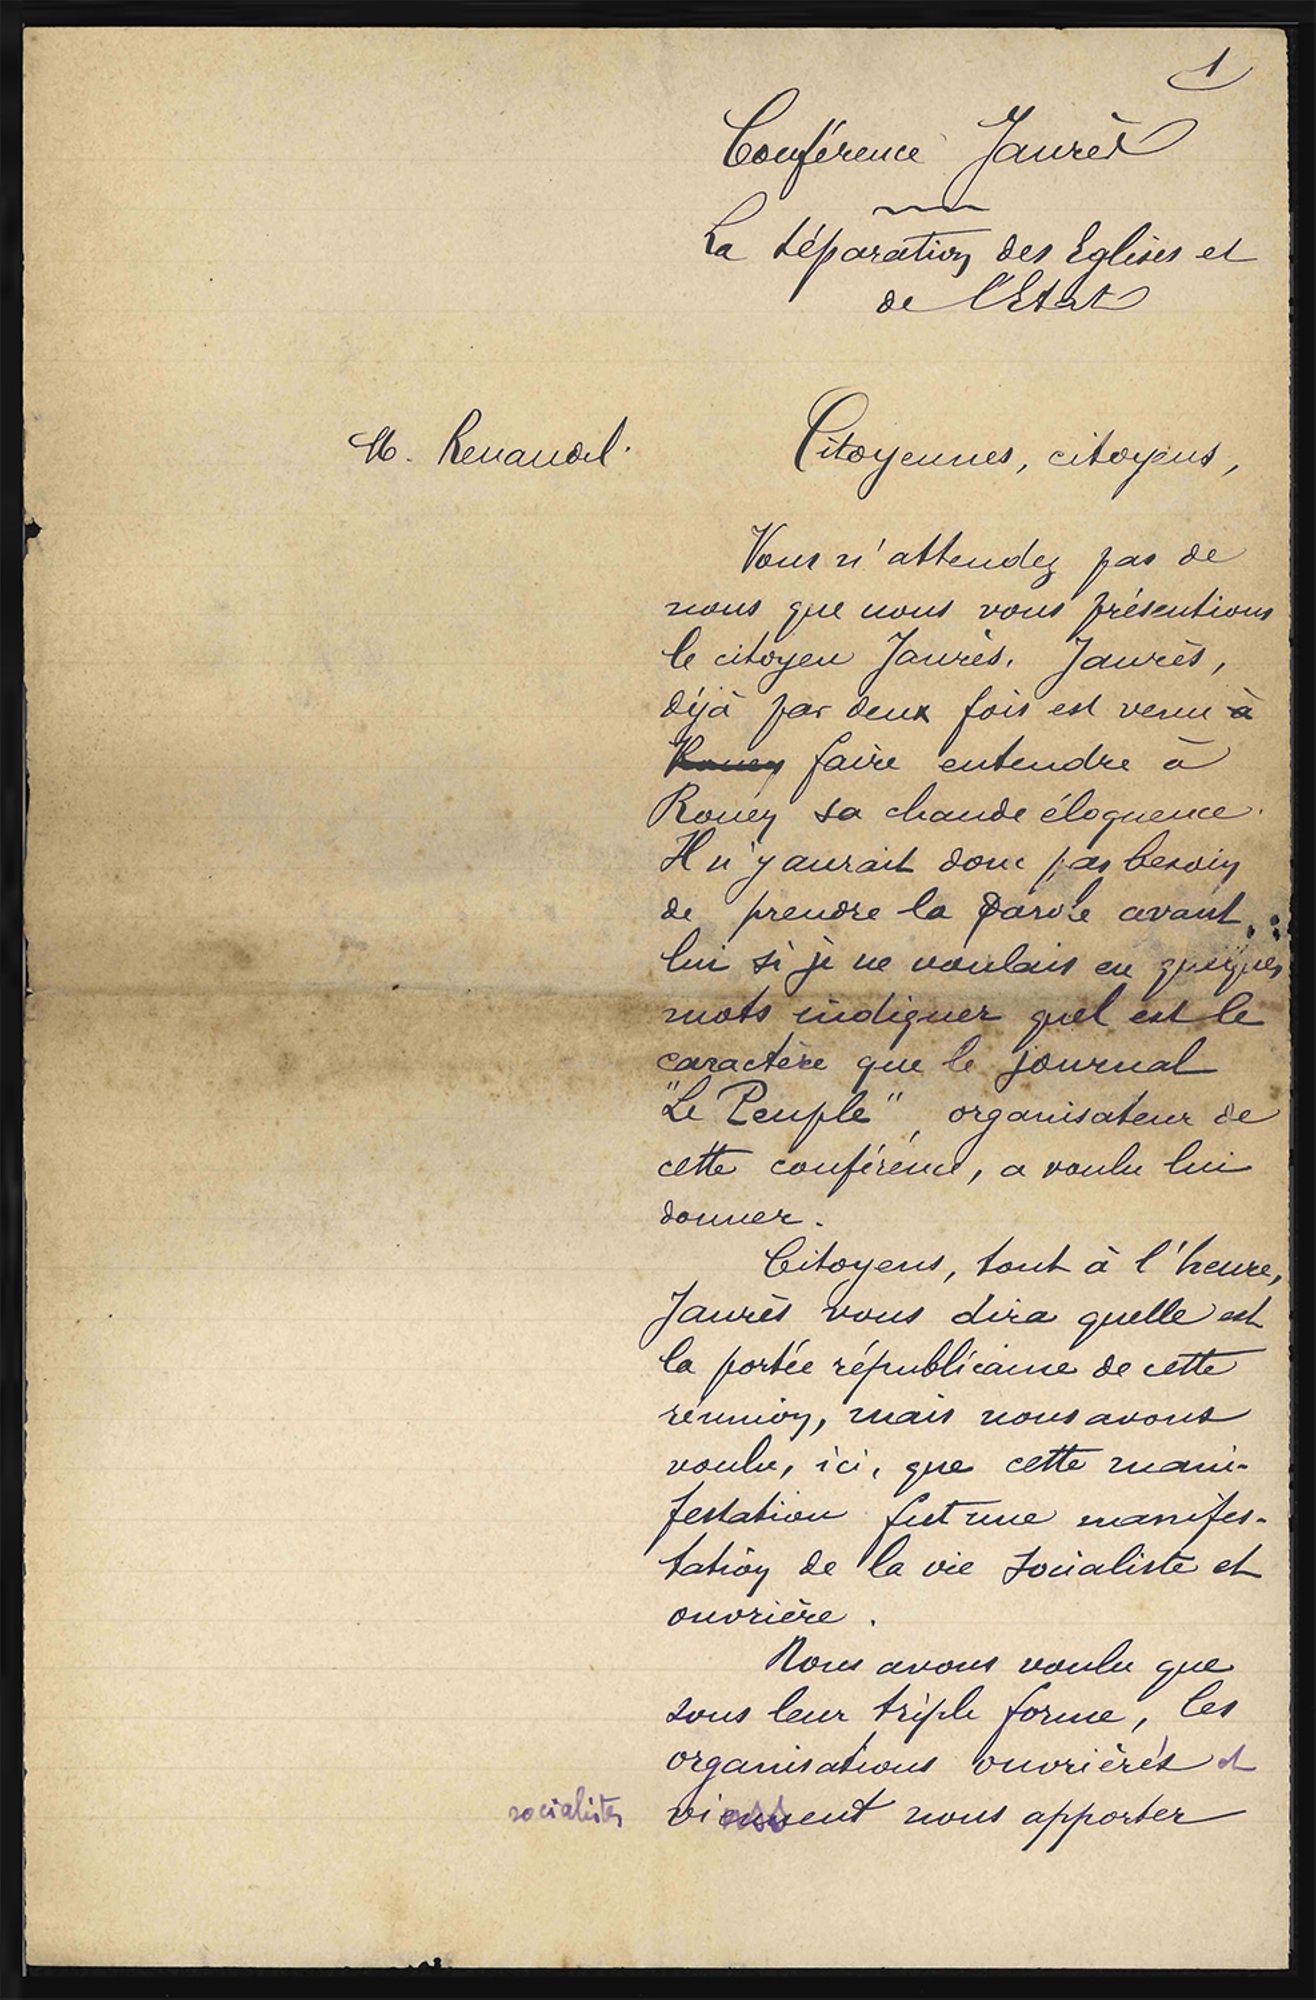 1
Conférence Jaurès
La séparation des Eglises et
de l'Etat
M. Renaudel.
Citoyennes, citoyens,
Vous n'attendez pas de
nous que nous vous présentions
le citoyen Jaurès. Jaurès,
déjà par deux fois est venu à
Rouen faire entendre à
Rouen sa chaude éloquence.
Il n'y aurait donc pas besoin
de prendre la parole avant
lui si je ne voulais en quelques
mots indiquer quel est le
caractère que le journal
"Le Peuple", organisateur de
cette conférence, a voulu lui
donner.
Citoyens, tout à l'heure,
Jaurès vous dira quelle est
la portée républicaine de cette
réunion, mais nous avons
voulu, ici, que cette mani-
festation fut une manifes-
tation de la vie socialiste et
ouvrière.
Nous avons voulu que
sous leur triple forme, les
organisations ouvrières et
socialistes viennent nous apporter